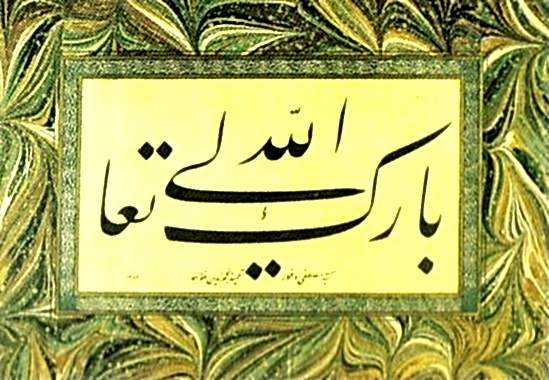 بارك الله تعالي